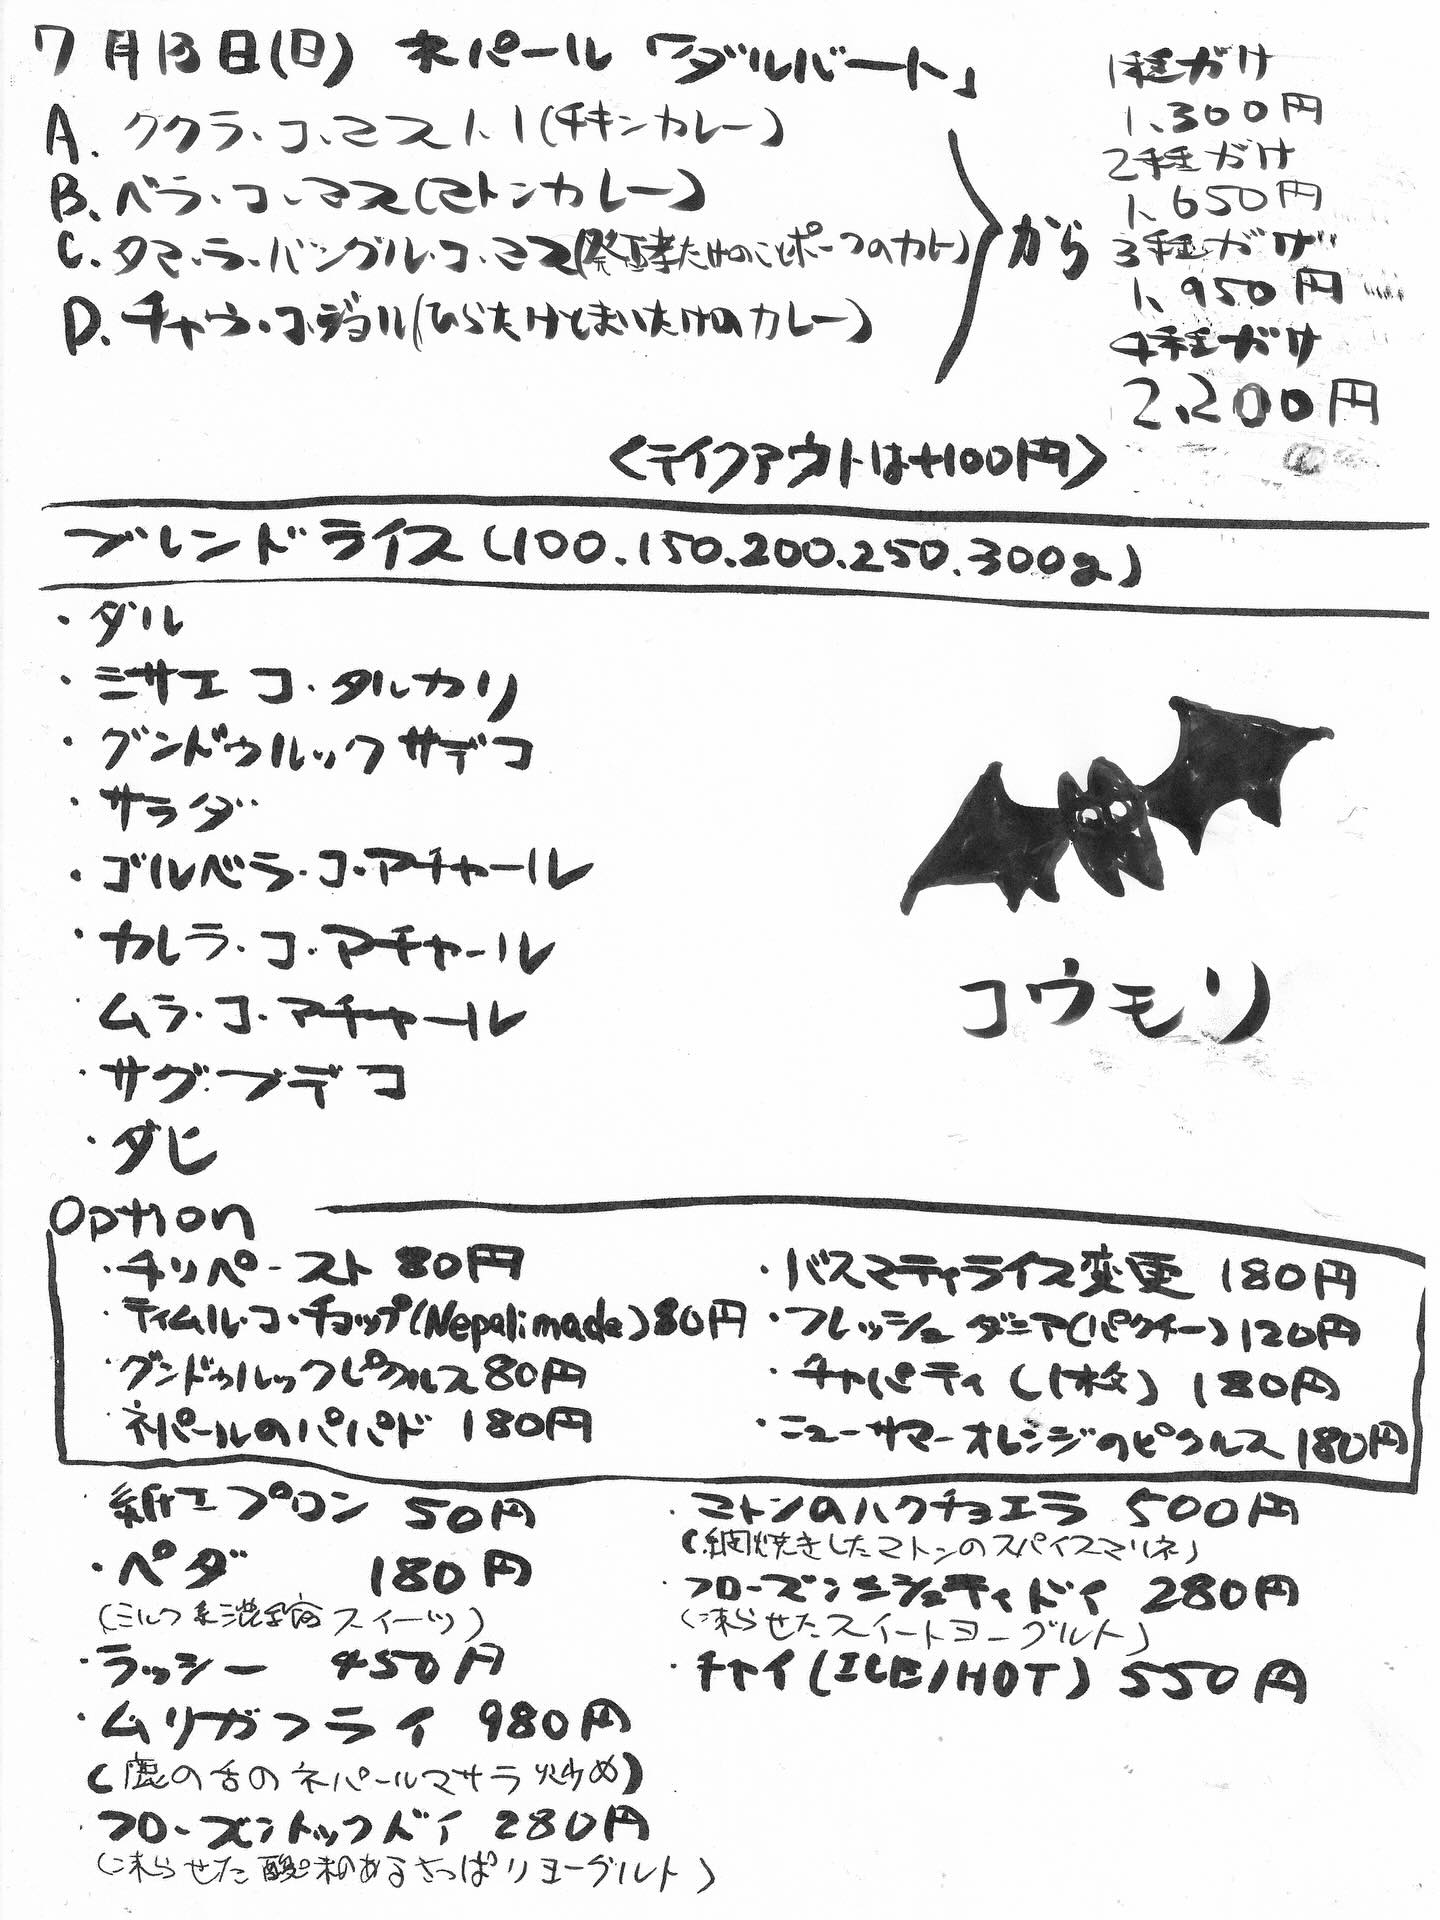 7月13日(日) ネパール「ダルバート」
A. ククラ・コ・マスト、1(チキンカレー)
B. ベラ・コ・マス(マトンカレー)
C. タマ・ラ・バングル・コ・マス(発酵たけのことポークのカレー)
D. チャウ・コ・ジョル(ひらたけとまいたけのカレー)
から
1種がけ
1,300円
2種がけ
1,650円
3種がけ
1,950円
4種がけ
2,200円
〈テイクアウトは+100円〉
ブレンドライス(100.150.200.250.300g)
・ダル
・ミサエ コ・タルカリ
・グンドゥルック サデコ
・サラダ
・ゴルベラ・コ・アチャール
・カレラ・コ・アチャール
・ムラ・コ・アチャール
・サグ ブデコ
・ダヒ
コウモリ
Option
・チリペースト 80円
・ティムル・コ・チョップ(Nepali made)80円
・グンドゥルックピクルス 80円
・ネパールのパパド 180円
・バスマティライス変更 180円
・フレッシュ ダニア(パクチー)120円
・チャパティ(1枚) 180円
・ニューサマーオレンジのピクルス 180円
・紙エプロン 50円
・ペダ 180円
(ミルク系濃縮スイーツ)
・ラッシー 450円
・ムリガフライ 980円
(鹿の舌のネパールマサラ炒め)
・フローズントックドイ 280円
(凍らせた酸味のあるさっぱりヨーグルト)
・マトンのハクチョエラ 500円
(網焼きしたマトンのスパイスマリネ)
・フローズンミシュティドイ 280円
(凍らせたスイートヨーグルト)
・チャイ(ICE/HOT) 550円